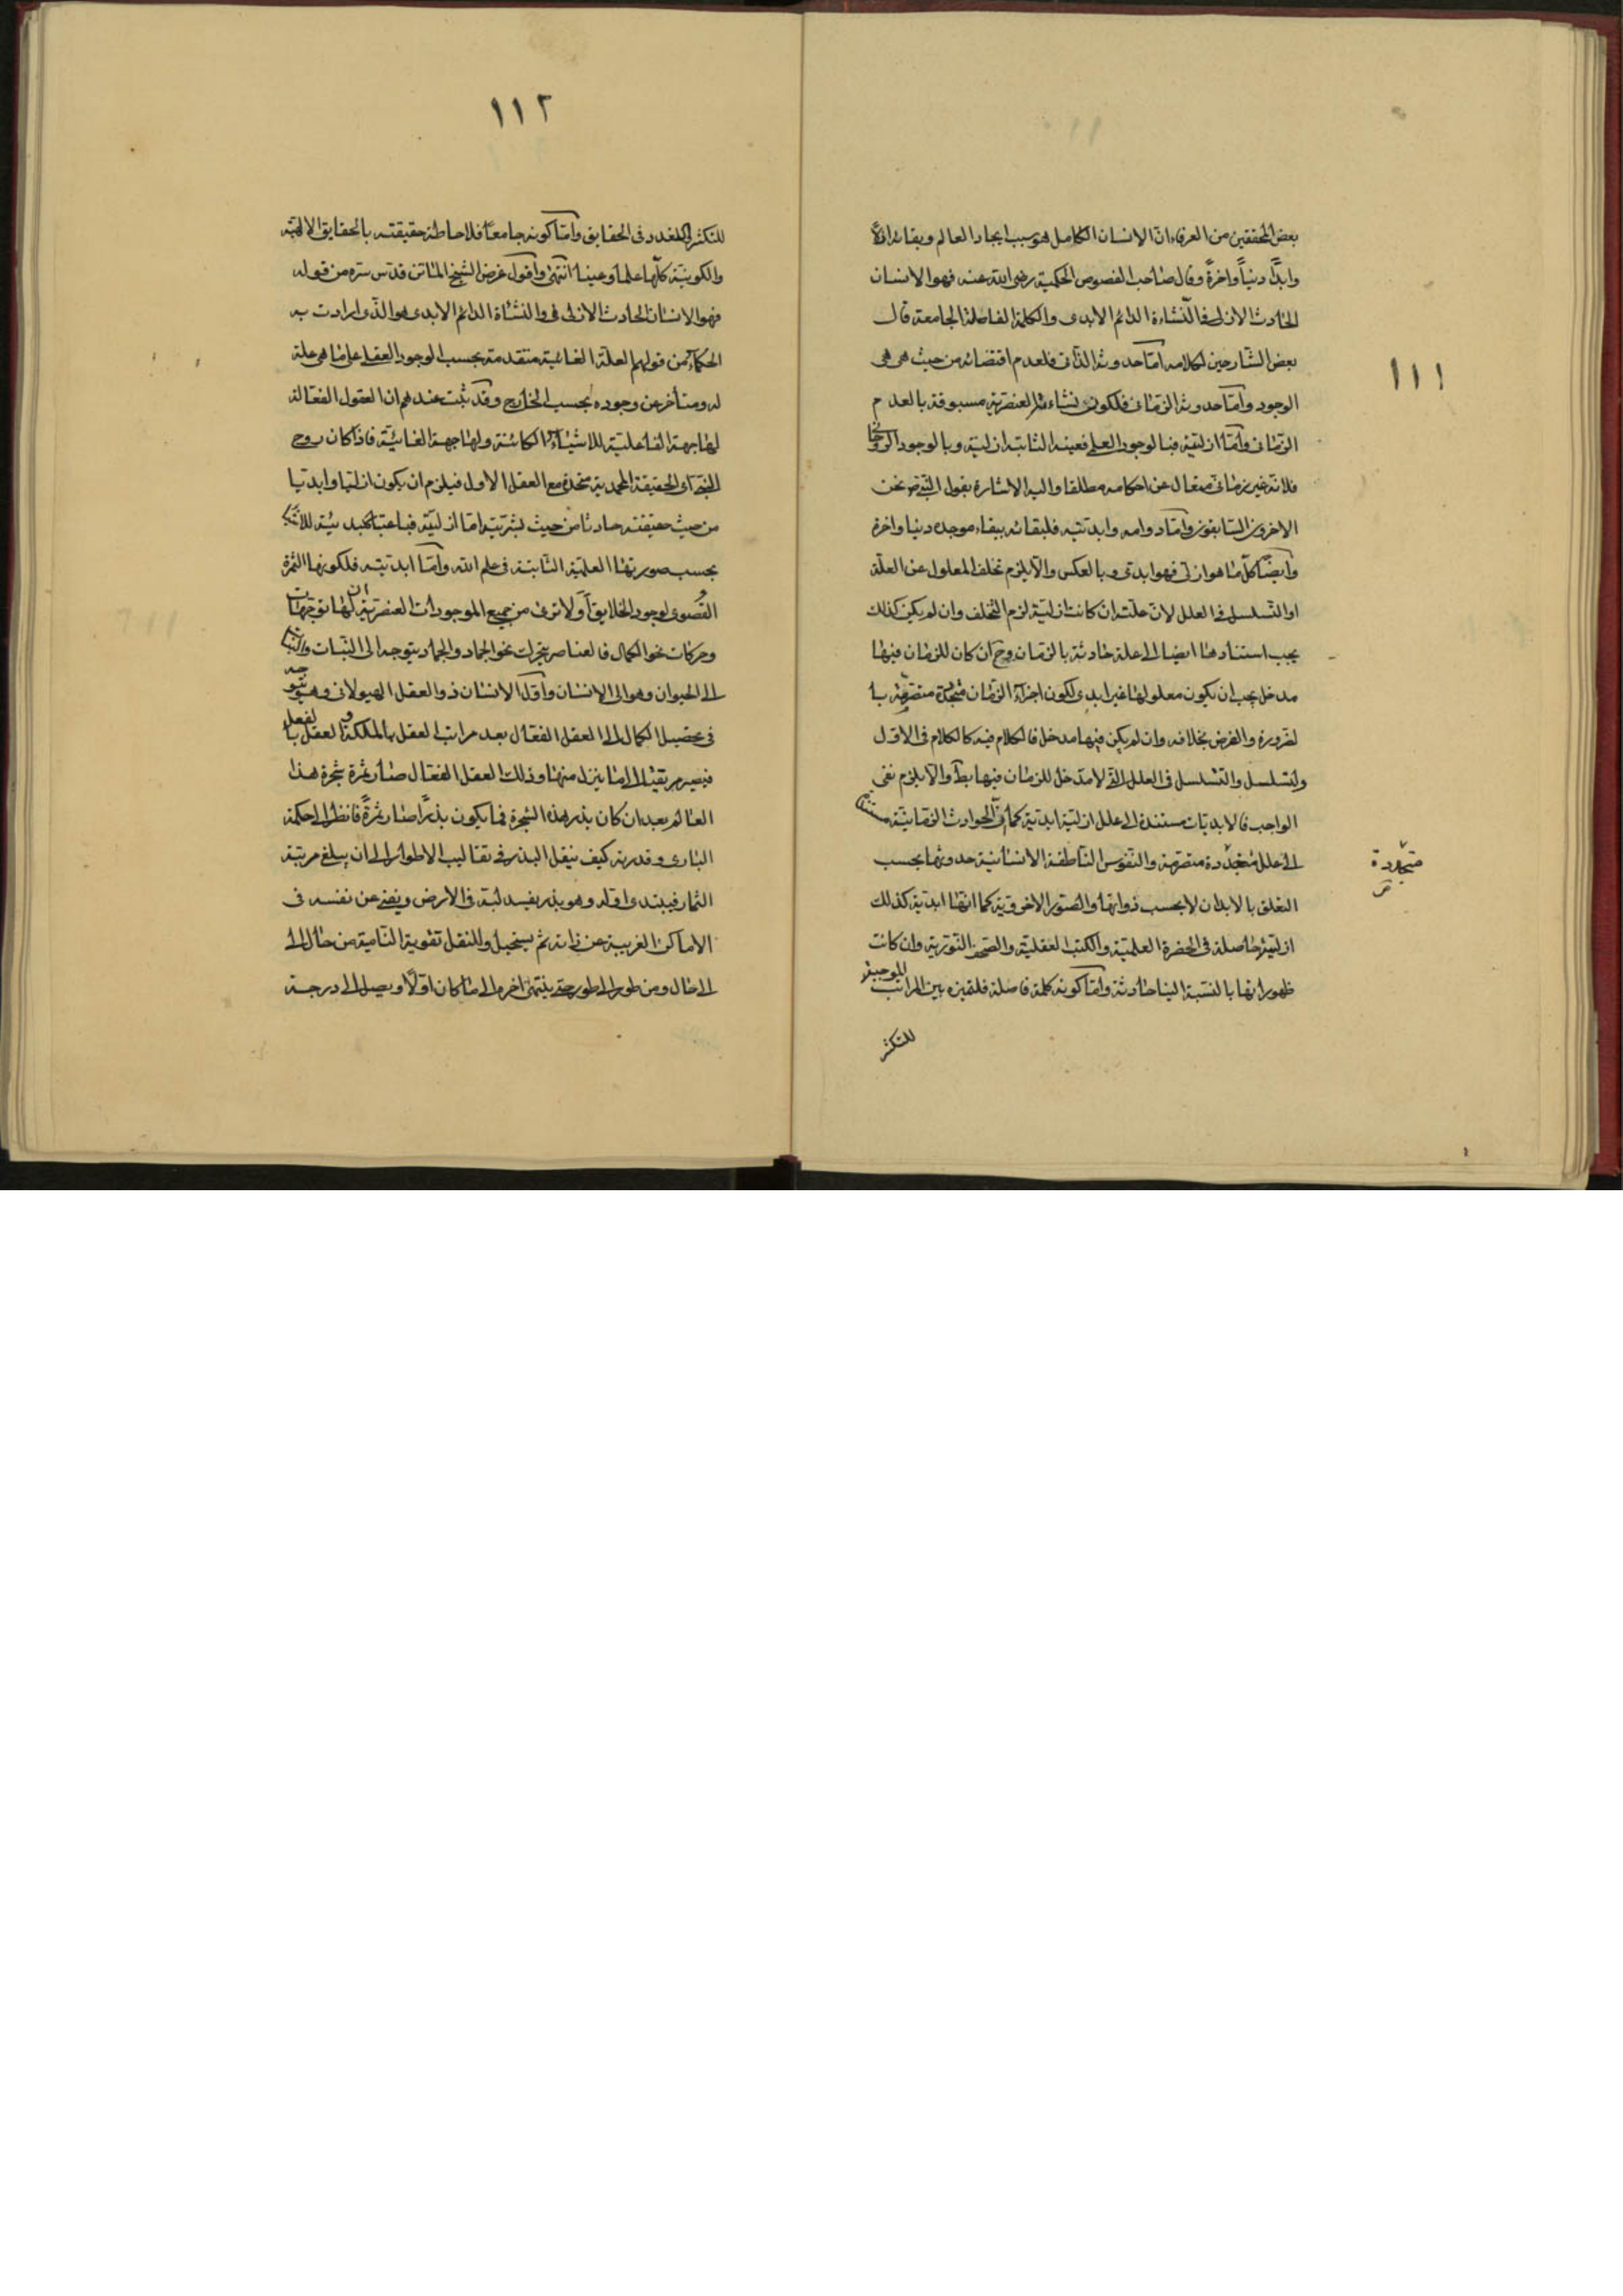 ١١١
بعض المحققين من العرفاء ان الانسان الكامل هو سبب ايجاد العالم وبقائه ازلاً
وابداً دنياً واخرةً وقال صاحب الفصوص الحكمية رضى الله عنه فهو الانسان
الحادث الازلى والنشاءة الدائم الابدى والكلمة الفاصلة الجامعة قال
بعض الشارحين لكلامه امّا حدوثه الذاتى فلعدم اقتضائه من حيث هى هى
الوجود وامّا حدوثه الزمانى فلكون نشاءته العنصرية مسبوقة بالعدم
الزمانى وامّا ازليته فبالوجود العلمى فعينه الثابتة ازلية وبالوجود الروحانى
فلانه غير زمانى متعال عن احكامه مطلقا واليه الاشارة بقول النبى ص نحن
الاخرون السابقون وامّا دوامه وابديته فلبقائه ببقاء موجده دنيا واخرة
وايضاً كل ما هو ازلى فهو ابدى وبالعكس والّا يلزم تخلف المعلول عن العلة
او التسلسل فى العلل لان علته ان كانت ازلية لزم التخلف وان لم يكن كذلك
يجب استنادها ايضا الى علة حادثة بالزمان وح ان كان للزمان فيها
مدخل يجب ان يكون معلولها غير ابدى لكون اجزاء الزمان متجددة متصرمة با
لضرورة والفرض بخلافه وان لم يكن فيها مدخل فالكلام فيه كالكلام فى الاول
ولتسلسل والتسلسل فى العلل التى لا مدخل للزمان فيها بط والّا يلزم نفى
الواجب فالابديات مستندة الى علل ازلية ابدية كما ان الحوادث الزمانية مستندة
الى علل متجدّدة متصرمة والنفوس الناطقة الانسانية حدوثها بحسب
متجدّدة
التعلق بالابدان لا بحسب ذواتها والصور الاخروية كما انها ابدية كذلك
ازلية حاصلة فى الحضرة العلمية والكتب العقلية والصحف النورية وان كانت
ظهوراتها بالنسبة الينا حادثة وامّا كونه كلمة فاصلة فلتميزه بين المراتب الموجبة
للتكثر
١١٢
للتكثر والتعدد فى الحقايق وامّا كونه جامعاً فلاحاطة حقيقته بالحقايق الالهية
والكونية كلّها علما وعيناً انتهى واقول غرض الشيخ الماتن قدّس سرّه من قوله
فهو الانسان الحادث الازلى والنشاة الدائم الابدى هو الذى ارادت به
الحكماء من قولهم العلة الغائية متقدمة بحسب الوجود العقلى على ما هى علة
له ومتأخر عن وجوده بحسب الخارج وقد ثبت عندهم ان العقول الفعالة
لها جهة الفاعلية للاشياء الكائنة ولها جهة الغائية فاذا كان روح
النبى اى الحقيقة المحمدية متحدة مع العقل الاول فيلزم ان يكون ازليا وابديا
من حيث حقيقته حادثا من حيث بشريته امّا ازليته فباعتبار
بحسب صورتها العلمية الثابتة فى علم الله وامّا ابديته فلكونها الثمرة
القصوى لوجود الخلايق اولا ترى من جميع الموجودات العنصرية ان لها توجهات
وحركات نحو الكمال فالعناصر يتحرك نحو الجماد والجماد يتوجه الى النبات والنبات
الى الحيوان وهو الى الانسان واوّل الانسان ذو العقل الهيولانى وهو يتوجه
فى تحصيل الكمال الى العقل الفعال بعد مراتب العقل بالملكة والعقل بالفعل
فيصير مرتقيا الى ما ينزل منها وذلك العقل الفعال صار ثمرة شجرة هذا
العالم بعد ان كان بذر هذه الشجرة فما يكون بذراً صار ثمرةً فانظر الى حكمة
البارى وقدرته كيف ينقل البذر فى تقاليب الاطوار الى ان يبلغ مرتبة
الثمار فيبتدى اوله وهو بذر يفسد لبّه فى الارض ويفنى عن نفسه فى
الاماكن الغريبة عن ذاته ثم يستحيل وللنقل تقوية النامية من حال الى
الى حال ومن طور الى طور حتى ينتهى اخره الى ما كان اوّلاً ويصل الى درجة